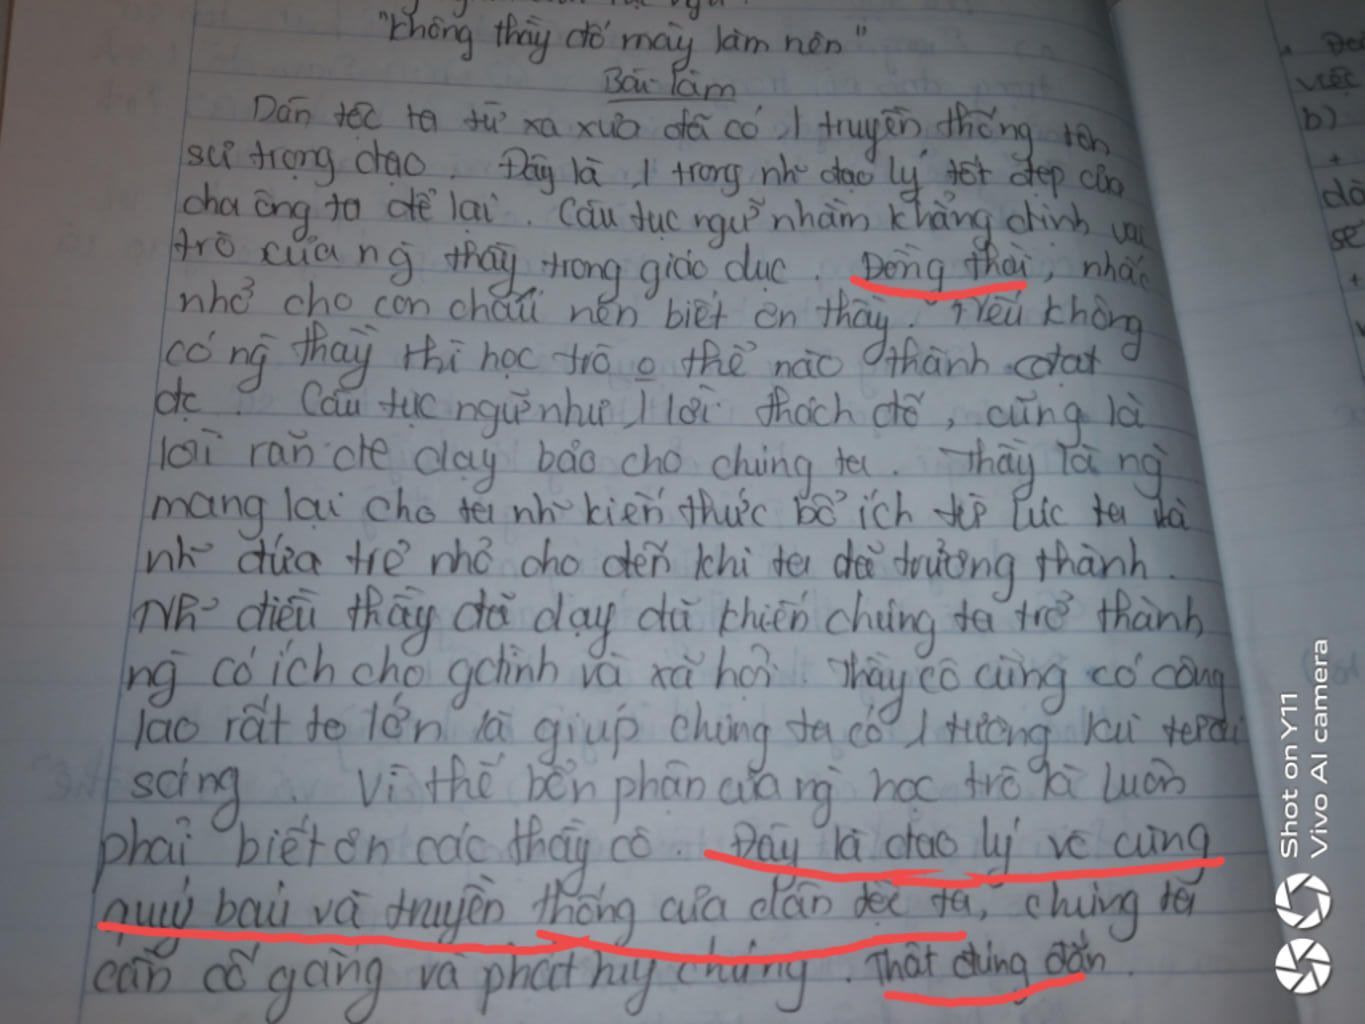 "Không thầy đố mày làm nên"
Bài làm
Dân tộc ta từ xa xưa đã có 1 truyền thống tôn
sư trọng đạo. Đây là 1 trong nh~ đạo lý tốt đẹp của
cha ông ta để lại. Câu tục ngữ nhằm khẳng định vai
trò của ng` thầy trong giáo dục. Đồng thời, nhắc
nhở cho con cháu nên biết ơn thầy. Nếu không
có ng` thầy thì học trò o thể nào thành đạt
đc. Câu tục ngữ như 1 lời thách đố, cũng là
lời răn đe dạy bảo cho chúng ta. Thầy là ng`
mang lại cho ta nh~ kiến thức bổ ích từ lúc ta là
nh~ đứa trẻ nhỏ cho đến khi ta đã trưởng thành.
Nh~ điều thầy đã dạy đã khiến chúng ta trở thành
ng` có ích cho gđình và xã hội. Thầy cô cũng có công
lao rất to lớn là giúp chúng ta có 1 tương lai
sáng. Vì thế bổn phận của ng` học trò là luôn
phải biết ơn các thầy cô. Đây là đạo lý vô cùng
quý báu và truyền thống của dân tộc ta, chúng ta
cần cố gắng và phát huy chúng. Thật đúng đắn.
việc
b)
+
+
Shot on Y11
Vivo AI camera